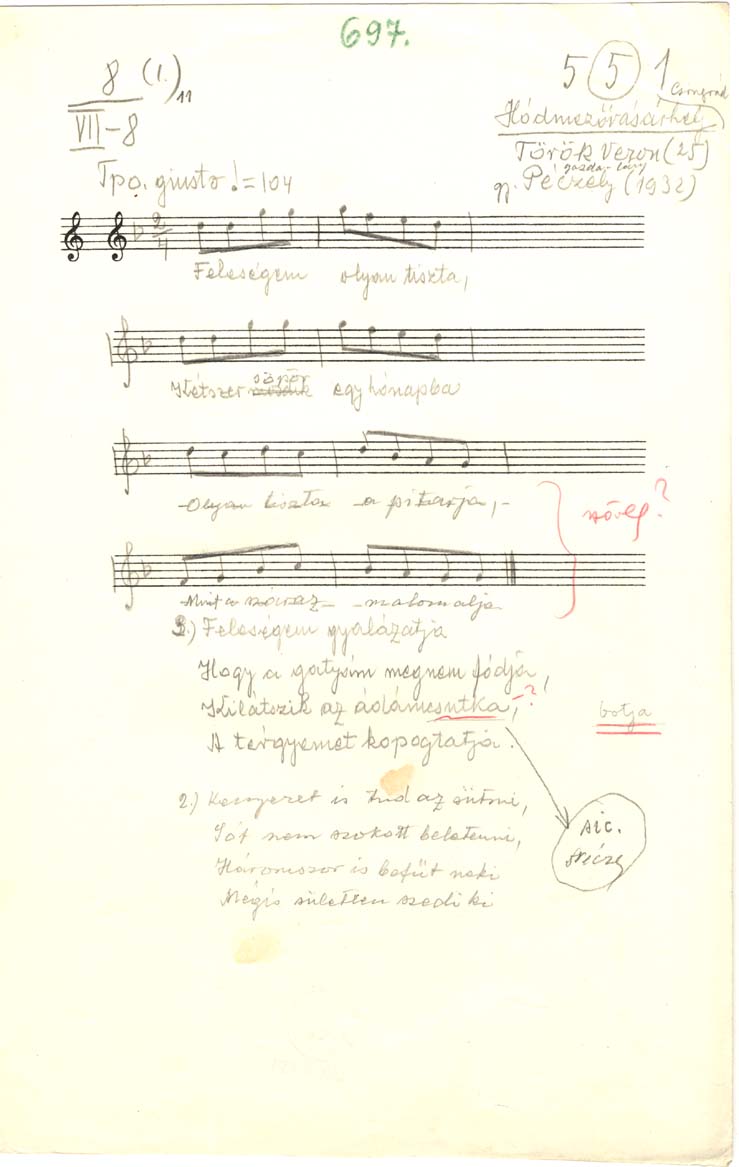 697.
8 (1.) 11
VII-8
5 5 1
Csongrád
Hódmezővásárhely
Török Veron (25)
gazda-lány
gy. Péczely (1932)
Tpo. giusto ♩=104
2/4
Feleségem olyan tiszta,
söpör
Kétszer egy hónapba
Olyan tiszta a pitarja,
Mint a száraz malomalja
szöveg?
3.) Feleségem gyalázatja
Hogy a gatyám megnem fódja,
Kilátszik az ádámcsutka, -?
botja
A térgyemet kopogtatja.
2.) Kenyeret is tud az sütni,
Sót nem szokott beletenni,
sic.
Háromszor is befűt neki
Mégis sületlen szedi ki